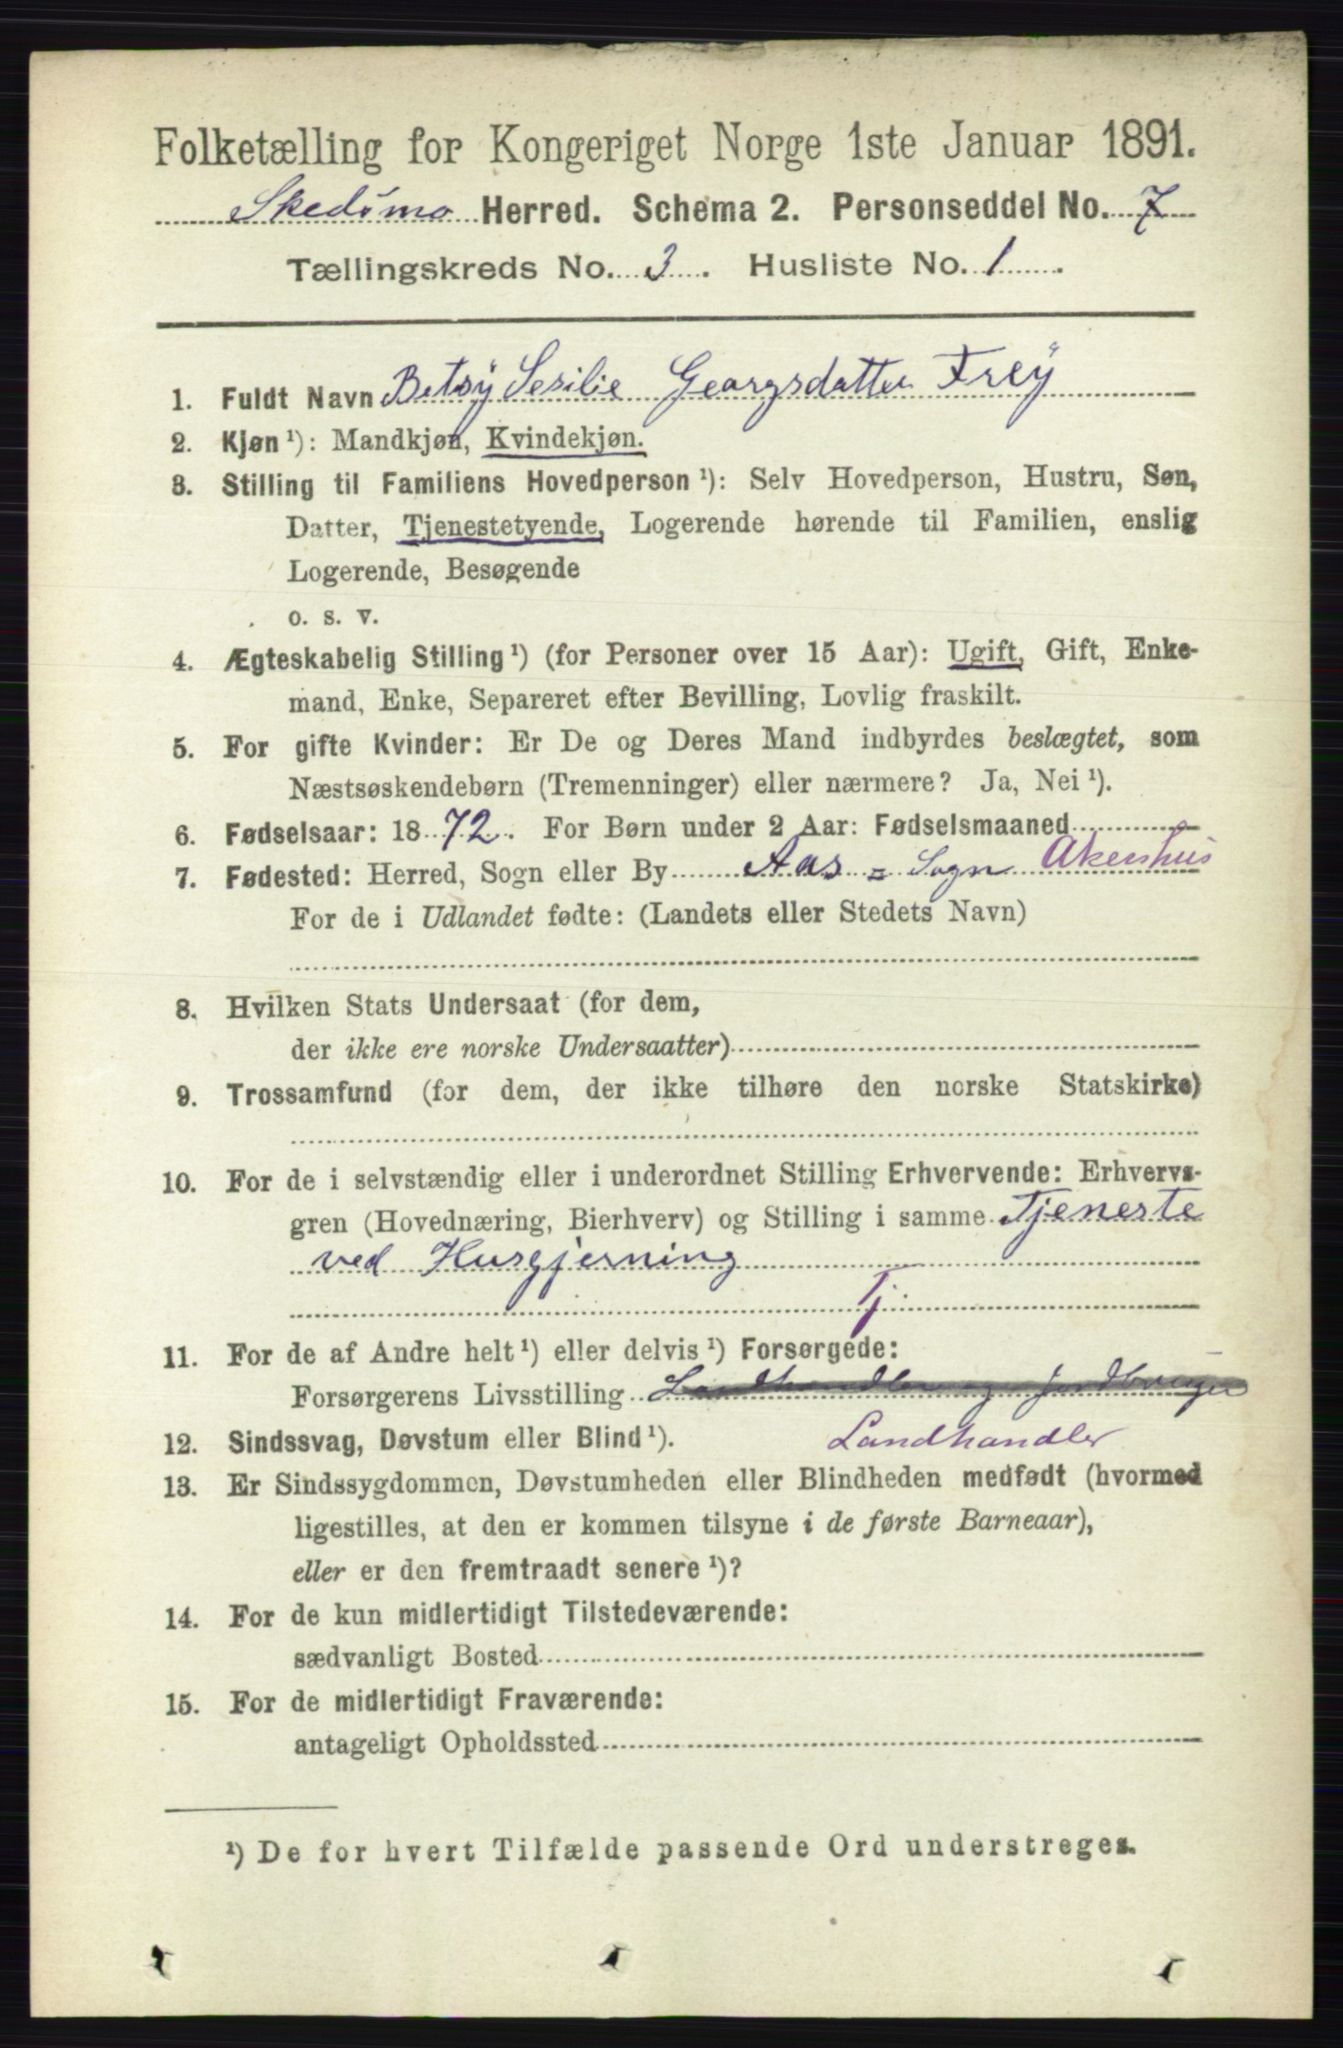 Folketælling for Kongeriget Norge 1ste Januar 1891.
Skedsmo Herred. Schema 2. Personseddel No. 7
Tællingskreds No. 3. Husliste No. 1.
1. Fuldt Navn Betsÿ Sesilie Georgsdatter Freÿ
2. Kjøn ¹): Mandkjøn, Kvindekjøn.
3. Stilling til Familiens Hovedperson ¹): Selv Hovedperson, Hustru, Søn,
Datter, Tjenestetyende, Logerende hørende til Familien, enslig
Logerende, Besøgende
o. s. v.
4. Ægteskabelig Stilling ¹) (for Personer over 15 Aar): Ugift, Gift, Enke-
mand, Enke, Separeret efter Bevilling, Lovlig fraskilt.
5. For gifte Kvinder: Er De og Deres Mand indbyrdes beslægtet, som
Næstsøskendebørn (Tremenninger) eller nærmere? Ja, Nei ¹).
6. Fødselsaar: 1872. For Børn under 2 Aar: Fødselsmaaned
7. Fødested: Herred, Sogn eller By Aas = Sogn Akershus
For de i Udlandet fødte: (Landets eller Stedets Navn)
8. Hvilken Stats Undersaat (for dem,
der ikke ere norske Undersaatter)
9. Trossamfund (for dem, der ikke tilhøre den norske Statskirke)
10. For de i selvstændig eller i underordnet Stilling Erhvervende: Erhvervs-
gren (Hovednæring, Bierhverv) og Stilling i samme Tjeneste
ved Husgjerning
Tj.
11. For de af Andre helt ¹) eller delvis ¹) Forsørgede:
Forsørgerens Livsstilling Landhandler og Jordbruger
Landhandler
12. Sindssvag, Døvstum eller Blind ¹).
13. Er Sindssygdommen, Døvstumheden eller Blindheden medfødt (hvormed
ligestilles, at den er kommen tilsyne i de første Barneaar),
eller er den fremtraadt senere ¹)?
14. For de kun midlertidigt Tilstedeværende:
sædvanligt Bosted
15. For de midlertidigt Fraværende:
antageligt Opholdssted
¹) De for hvert Tilfælde passende Ord understreges.